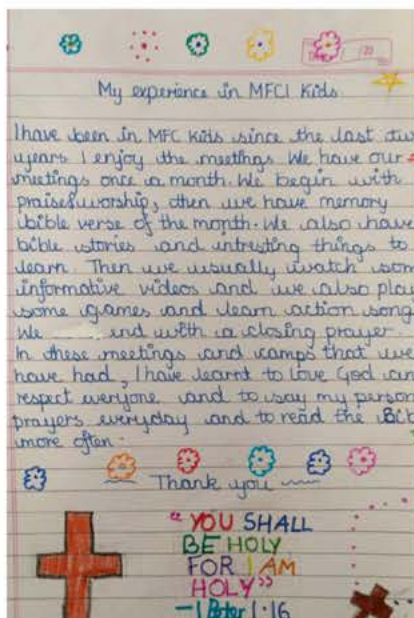 My experience in MFCI Kids
I have been in MFC Kids since the last
years I enjoy the meetings We have our
meetings once a month. We begin with
praise&worship, then we have memory
bible verse of the month. We also have
bible stories and intresting things to
learn. Then we usually watch som
informative videos and we also play
some games and learn action song
We end with a closing prayer.
In these meetings and camps that we
have had, I have learnt to love God an
respect everyone and to say my person
prayers everyday and to read the Bib
more often.
Thank you
"YOU SHALL
BE HOLY
FOR I AM
HOLY"
-1 Peter 1:16